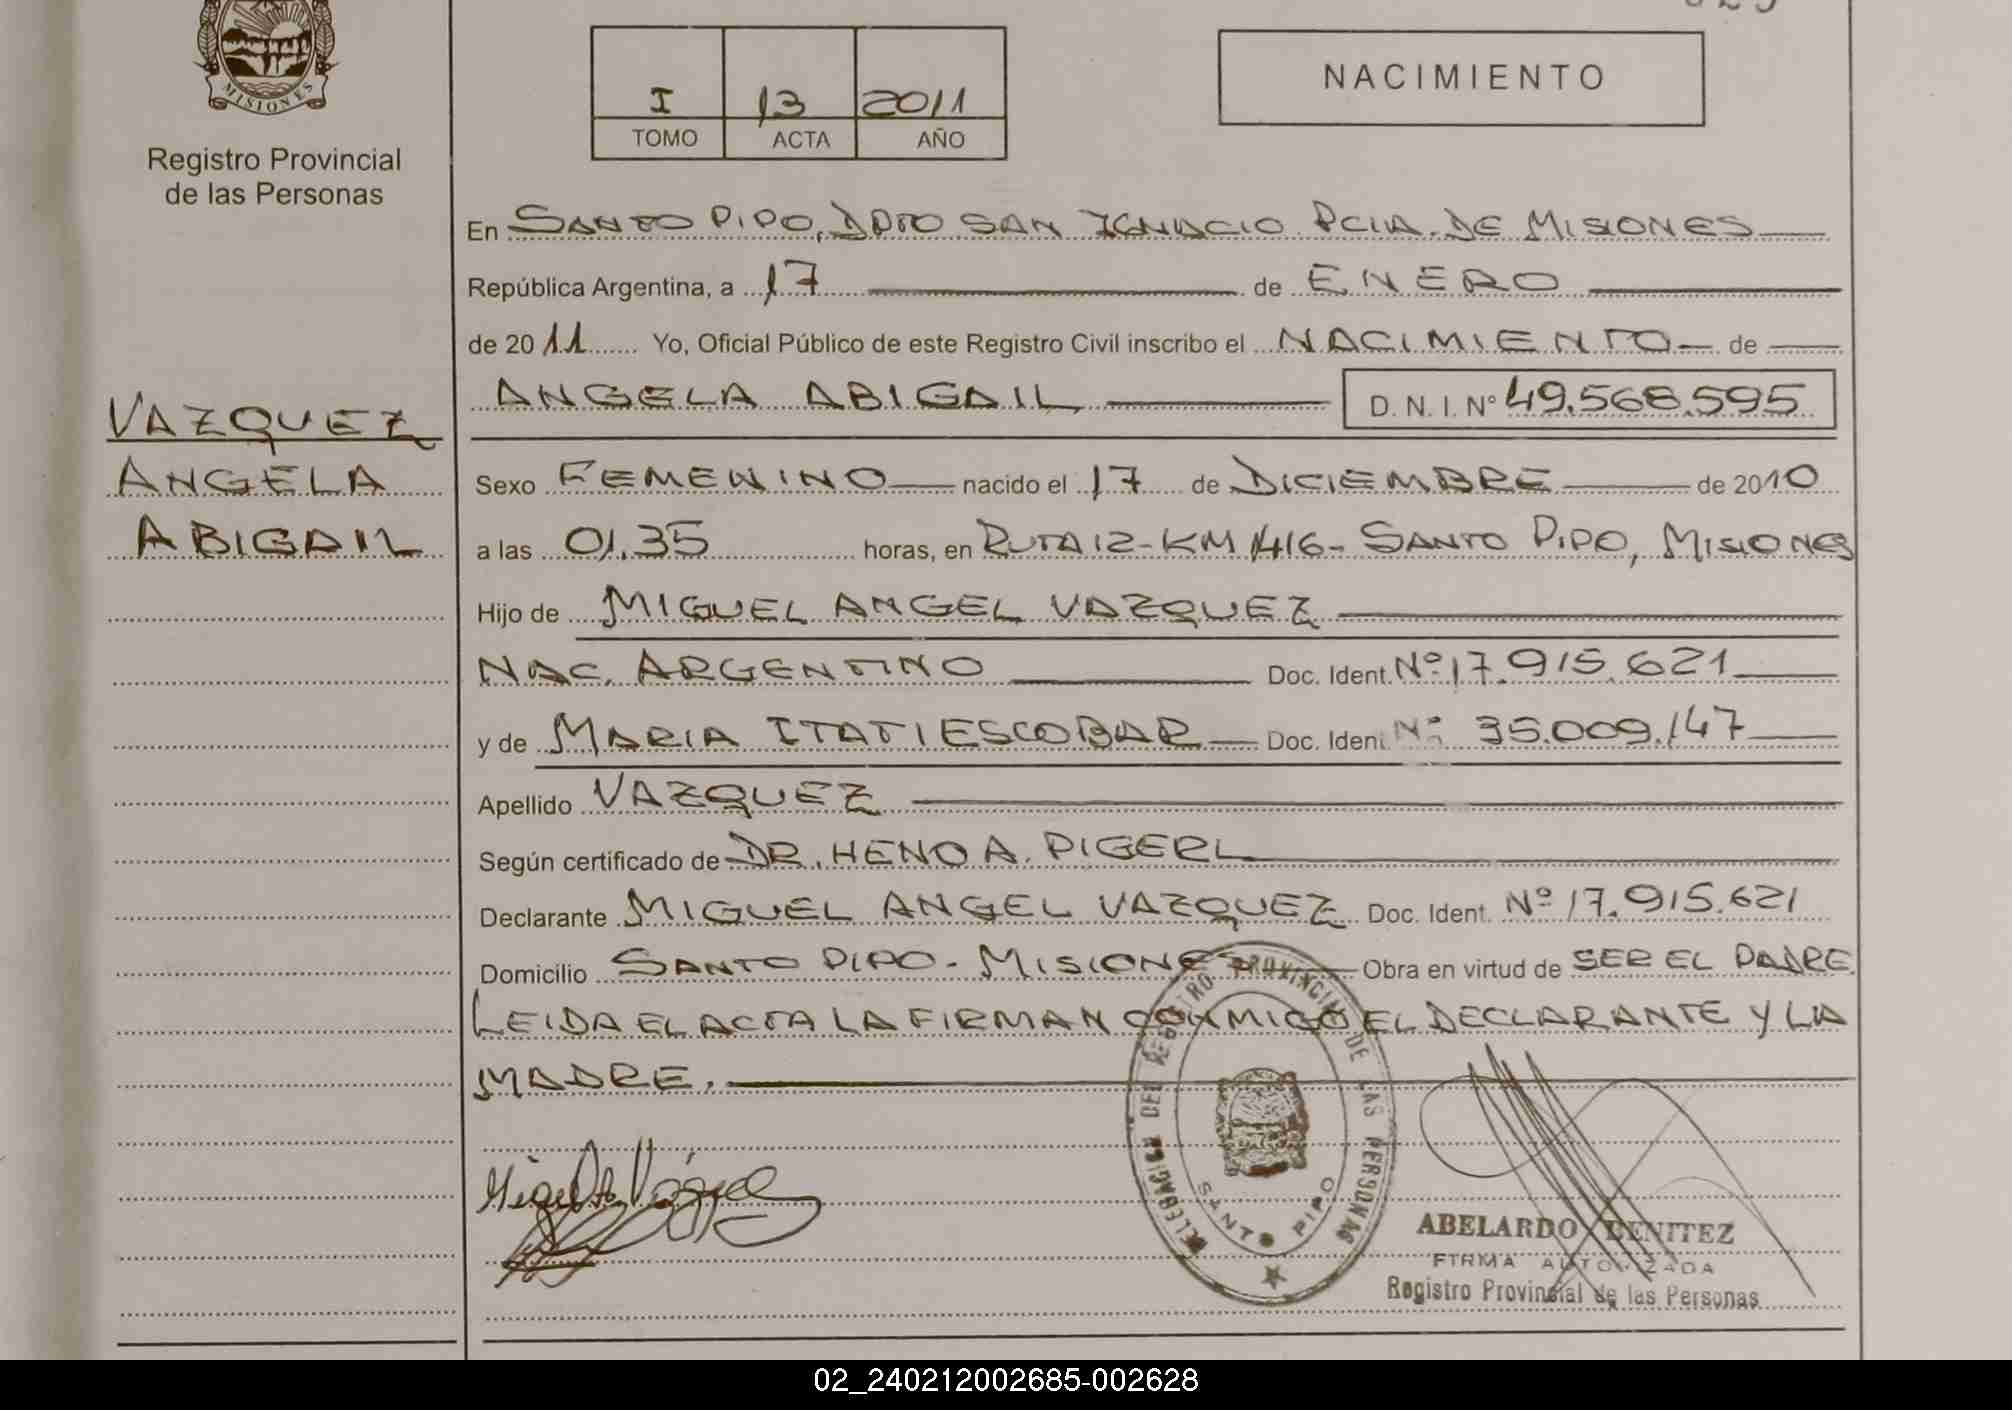 MISIONES
Registro Provincial
de las Personas
I 13 2011
TOMO ACTA AÑO
NACIMIENTO
VAZQUEZ
ANGELA
ABIGAIL
En SANTO PIPO, DPTO SAN IGNACIO PCIA. DE MISIONES
República Argentina, a 17 de ENERO
de 2011 Yo, Oficial Público de este Registro Civil inscribo el NACIMIENTO de
ANGELA ABIGAIL D. N. I. N° 49.568.595
Sexo FEMENINO nacido el 17 de DICIEMBRE de 2010
a las 01.35 horas, en RUTA 12-KM 1416- SANTO PIPO, MISIONES
Hijo de MIGUEL ANGEL VAZQUEZ
NAC. ARGENTINO Doc. Ident. Nº 17.915.621
y de MARIA ITATI ESCOBAR Doc. Ident Nº 35.009.147
Apellido VAZQUEZ
Según certificado de DR. HENO A. PIGERL
Declarante MIGUEL ANGEL VAZQUEZ Doc. Ident. Nº 17.915.621
Domicilio SANTO PIPO - MISIONES Obra en virtud de SER EL PADRE.
LEIDA EL ACTA LA FIRMAN CONMIGO EL DECLARANTE Y LA
MADRE.
DELEGACION DEL REGISTRO PROVINCIAL DE LAS PERSONAS
SANTO PIPO
Miguel A Vázquez
ABELARDO BENITEZ
FIRMA AUTORIZADA
Registro Provincial de las Personas
02_240212002685-002628